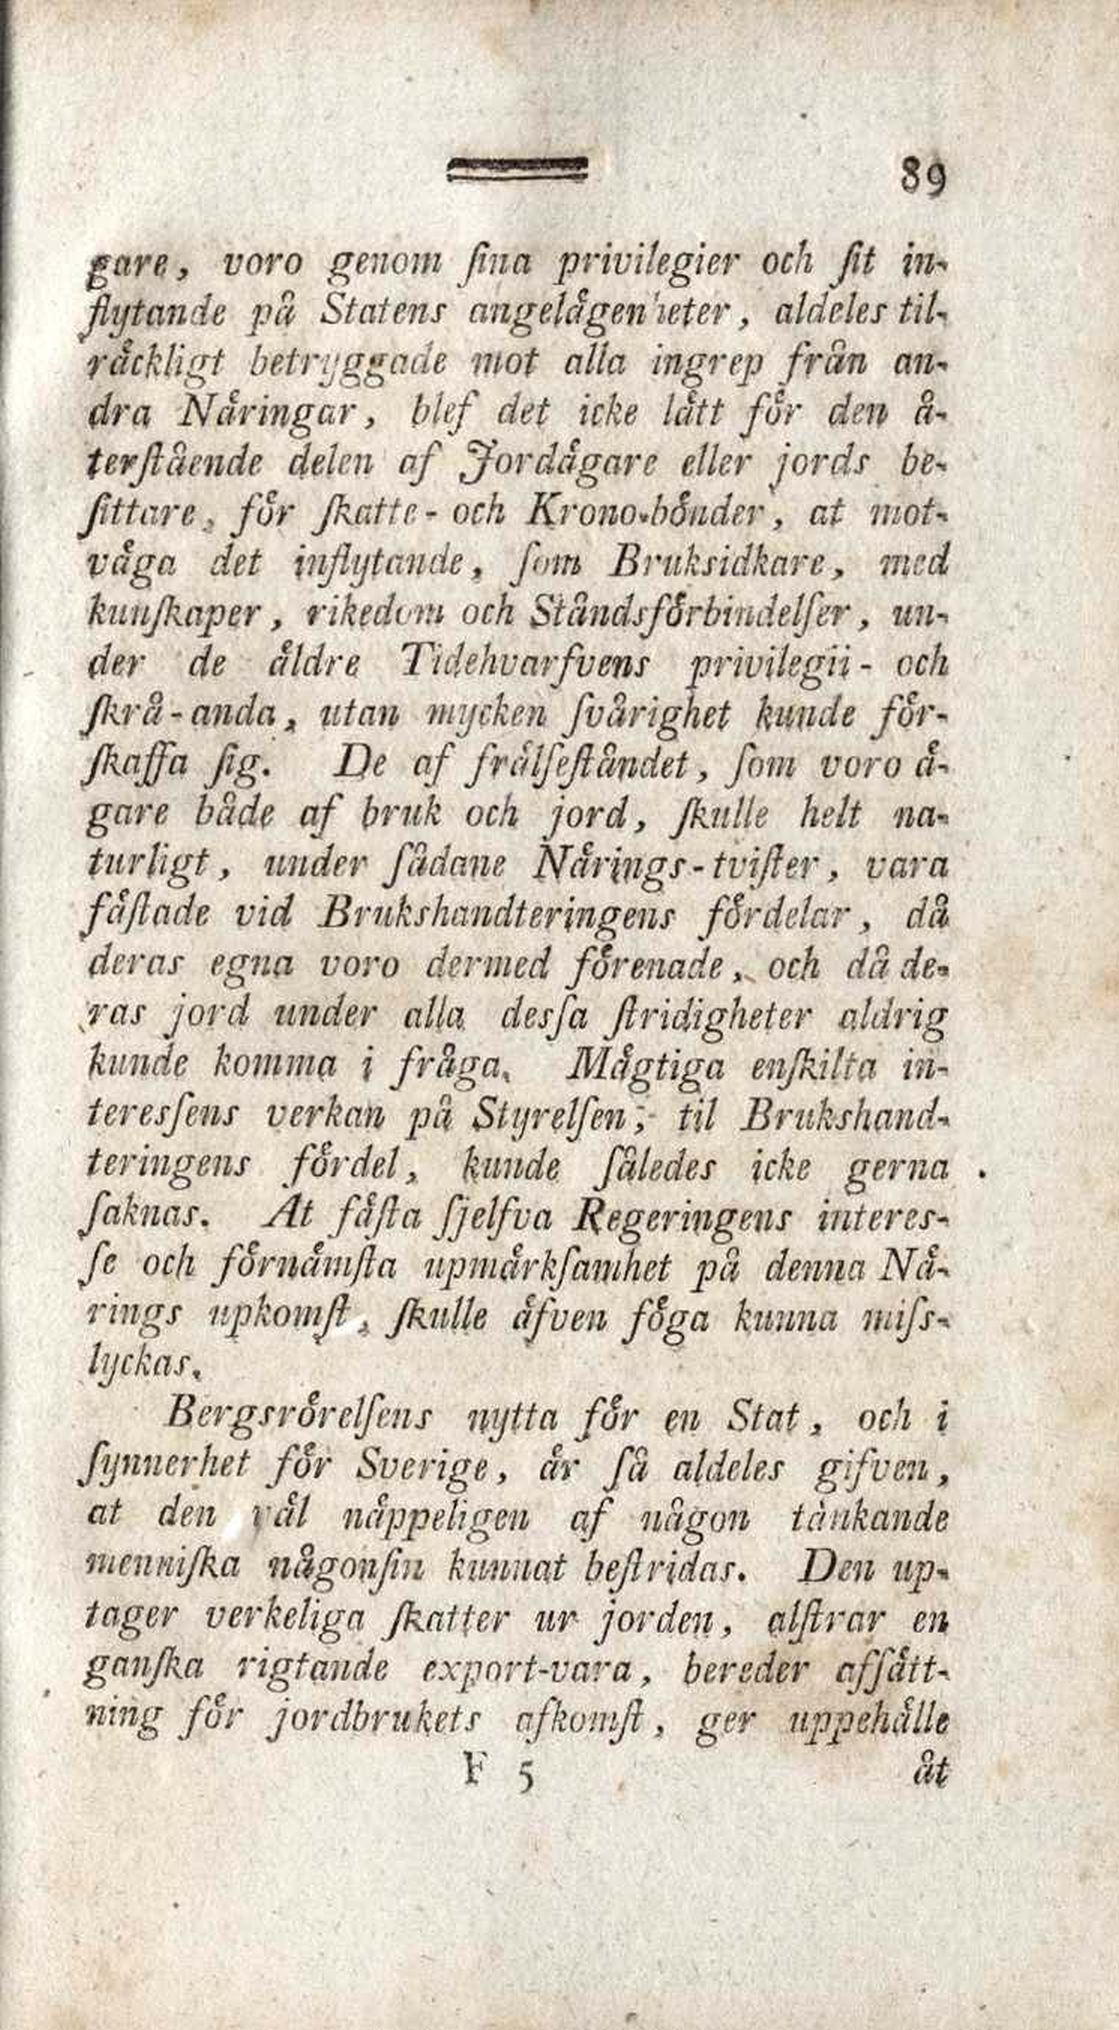 89
gare, voro genom ſina privilegier och ſit in-
flytande på Statens angelägenheter, aldeles til-
räckligt betryggade mot alla ingrep från an-
dra Näringar, blef det icke lätt för den å-
terſtående delen af Jordägare eller jords be-
ſittare, för ſkatte- och Krono-bönder, at mot-
väga det inflytande, ſom Bruksidkare, med
kunſkaper, rikedom och Ståndsförbindelſer, un-
der de äldre Tidehvarfvens privilegii- och
ſkrå-anda, utan mycken ſvårighet kunde för-
ſkaffa ſig. De af frälſeſtåndet, ſom voro ä-
gare både af bruk och jord, ſkulle helt na-
turligt, under ſådane Närings-tviſter, vara
fäſtade vid Brukshandteringens fördelar, då
deras egna voro dermed förenade, och då de-
ras jord under alla desſa ſtridigheter aldrig
kunde komma i fråga. Mägtiga enſkilta in-
teresſens verkan på Styrelſen, til Brukshand-
teringens fördel, kunde ſåledes icke gerna
ſaknas. At fäſta ſjelfva Regeringens interes-
ſe och förnämſta upmärkſamhet på denna Nä-
rings upkomſt, ſkulle äfven föga kunna miſs-
lyckas.
Bergsrörelſens nytta för en Stat, och i
ſynnerhet för Sverige, är ſå aldeles gifven,
at den väl näppeligen af någon tänkande
menniſka någonſin kunnat beſtridas. Den up-
tager verkeliga ſkatter ur jorden, alſtrar en
ganſka rigtande export-vara, bereder afſätt-
ning för jordbrukets afkomſt, ger uppehälle
F 5 åt